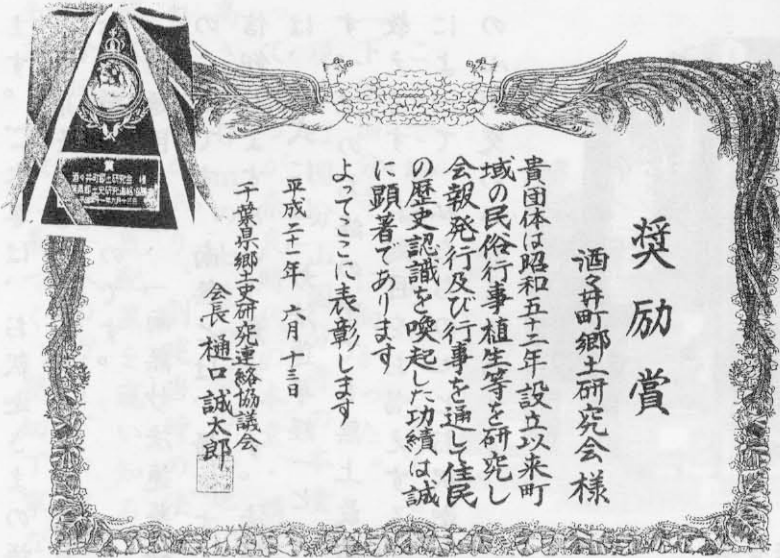 奨励賞
酒々井町郷土研究会様
貴団体は昭和五十二年設立以来町
域の民俗行事植生等を研究し
会報発行及び行事を通して住民
の歴史認識を喚起した功績は誠
に顕著であります
よってここに表彰します
平成二十一年 六月 十三日
千葉県郷土史研究連絡協議会
会長 樋口誠太郎
賞
酒々井町郷土研究会 様
千葉県郷土史研究連絡協議会